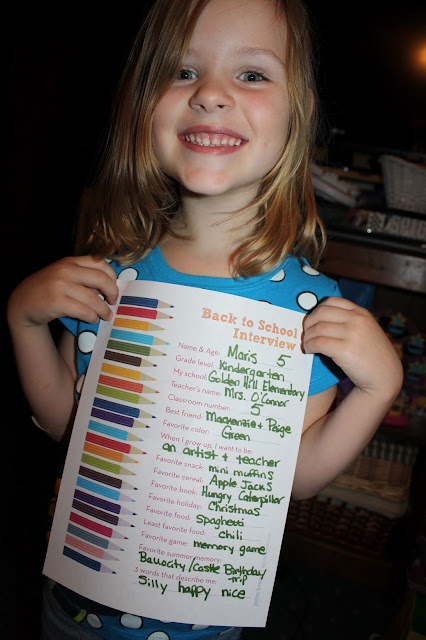 Back to School
Interview
Name & Age: Maris 5
Grade level: Kindergarten
My school: Golden Hill Elementary
Teacher's name: Mrs. O'Connor
Classroom number: 5
Best friend: Mackenzie + Paige
Favorite color: Green
When I grow up, I want to be:
an artist + teacher
Favorite snack: mini muffins
Favorite cereal: Apple Jacks
Favorite book: Hungry Caterpillar
Favorite holiday: Christmas
Favorite food: spaghetti
Least favorite food: chili
Favorite game: memory game
Favorite summer memory:
Ballocity/Castle Birthday/
trip
3 words that describe me:
Silly happy nice